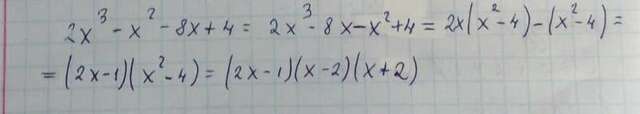 2x³ - x² - 8x + 4 = 2x³ - 8x - x² + 4 = 2x(x² - 4) - (x² - 4) =
= (2x - 1)(x² - 4) = (2x - 1)(x - 2)(x + 2)